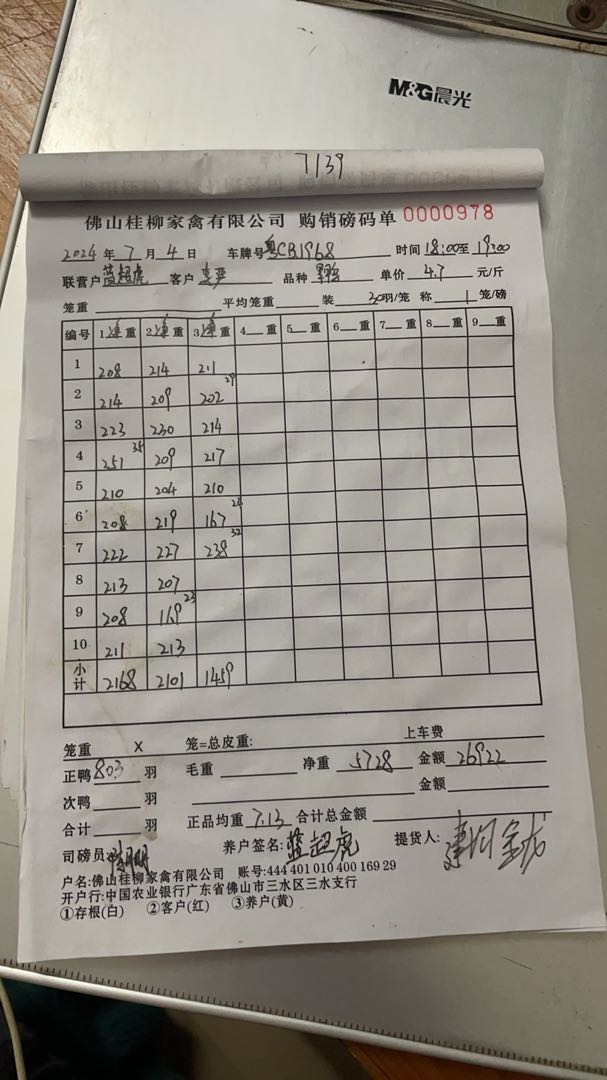 M&G晨光
7139
佛山桂柳家禽有限公司 购销磅码单 0000978
2024 年 7 月 4 日 车牌号 粤CB1968 时间 18:00至19:00
联营户 蓝超虎 客户 品种 单价 4.7 元/斤
笼重 平均笼重 装 30羽/笼 称 1 笼/磅
编号 1 速 重 2 速 重 3 速 重 4 重 5 重 6 重 7 重 8 重 9 重
1 208 214 211
2 214 209 202 29
3 223 230 214
4 251 35 209 217
5 210 204 210
6 208 219 167 24
7 222 227 238 32
8 213 207
9 208 169 23
10 211 213
小计 2168 2101 1459
笼重 X 笼=总皮重: 上车费
正鸭 803 羽 毛重 净重 5728 金额 26922
次鸭 羽 金额
合计 羽 正品均重 7.13 合计总金额
司磅员: 养户签名: 蓝超虎 提货人:
户名:佛山桂柳家禽有限公司 账号:444 401 010 400 169 29
开户行:中国农业银行广东省佛山市三水区三水支行
①存根(白) ②客户(红) ③养户(黄)